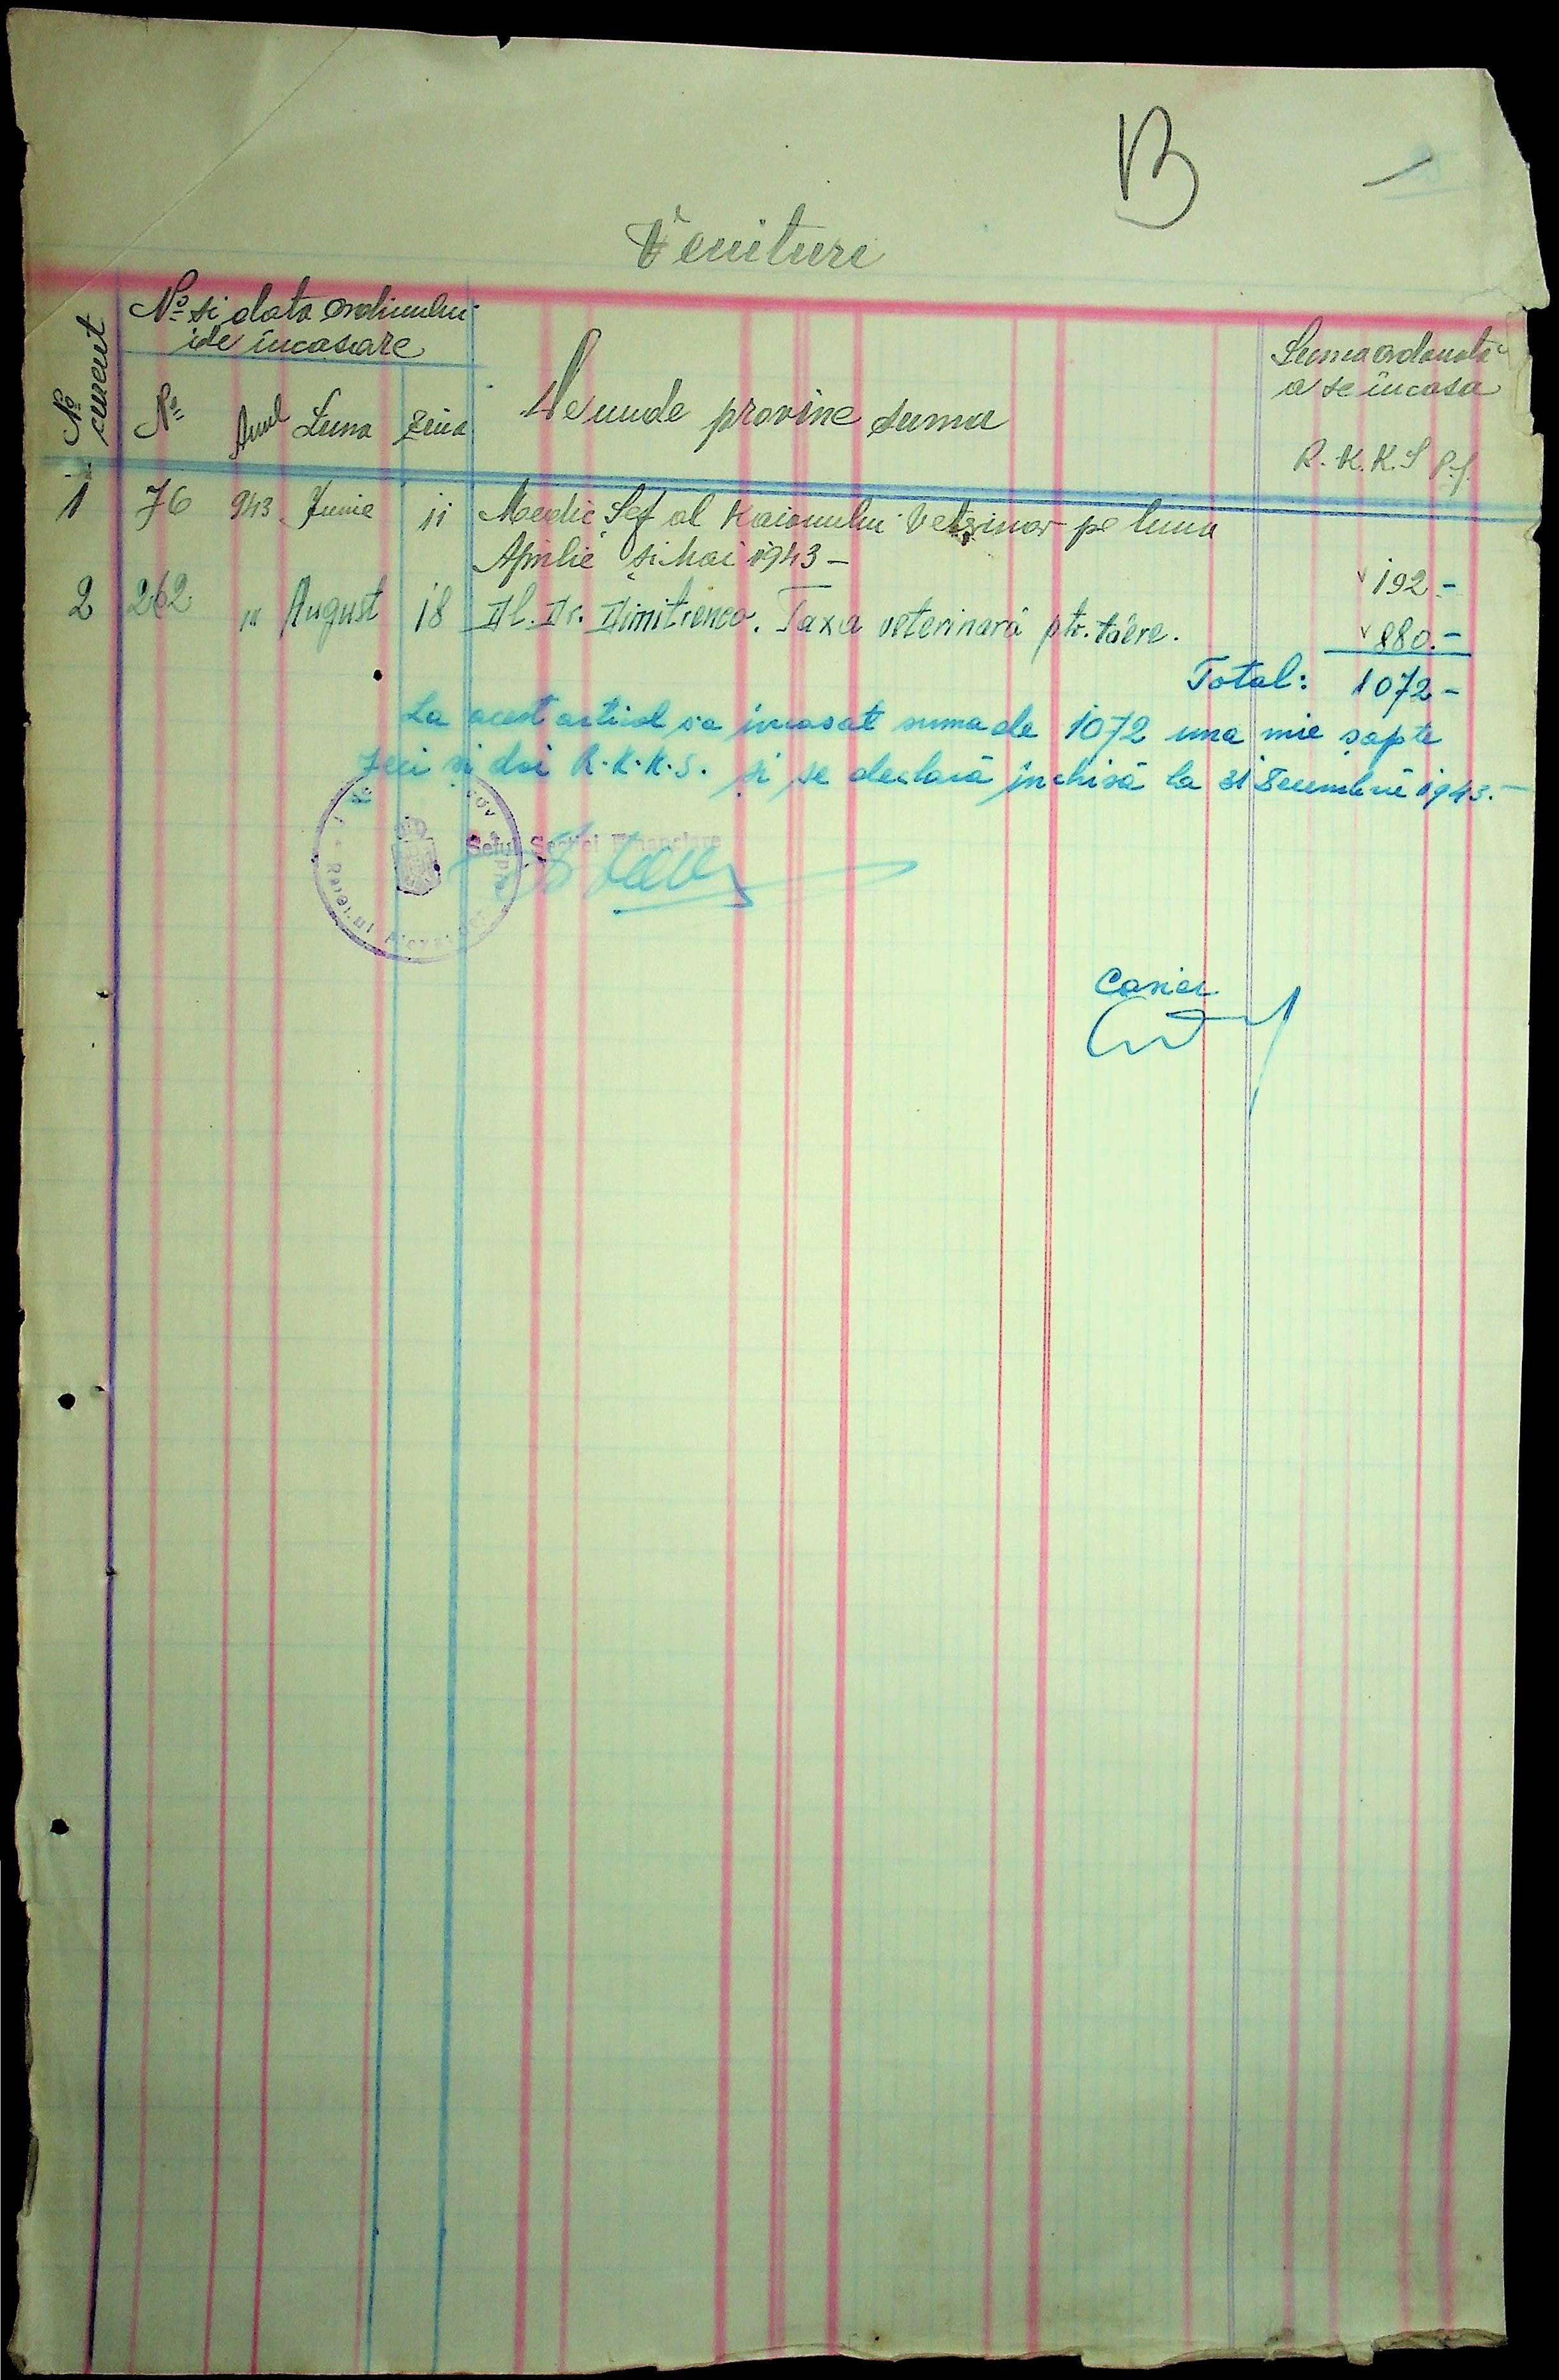 B
Venituri
No curent
No si data ordinului de încasare
No Anul Luna Ziua
De unde provine suma
Suma ordonată a se încasa
R.K.K.S Pf.
1 76 943 Junie 11 Medic Sef al Raionului Veterinar pe luna
Aprilie si Mai 1943 – 192.-
2 262 " August 18 Dl. Dr. Dimitrenco. Taxa veterinară ptr. tăere. 880.-
Total: 1072-
La acest articol s'a incasat suma de 1072 una mie șapte
zeci si doi R.K.K.S. și se declară închisă la 31 Decembrie 1943.-
Seful Secției Financiare
Casier